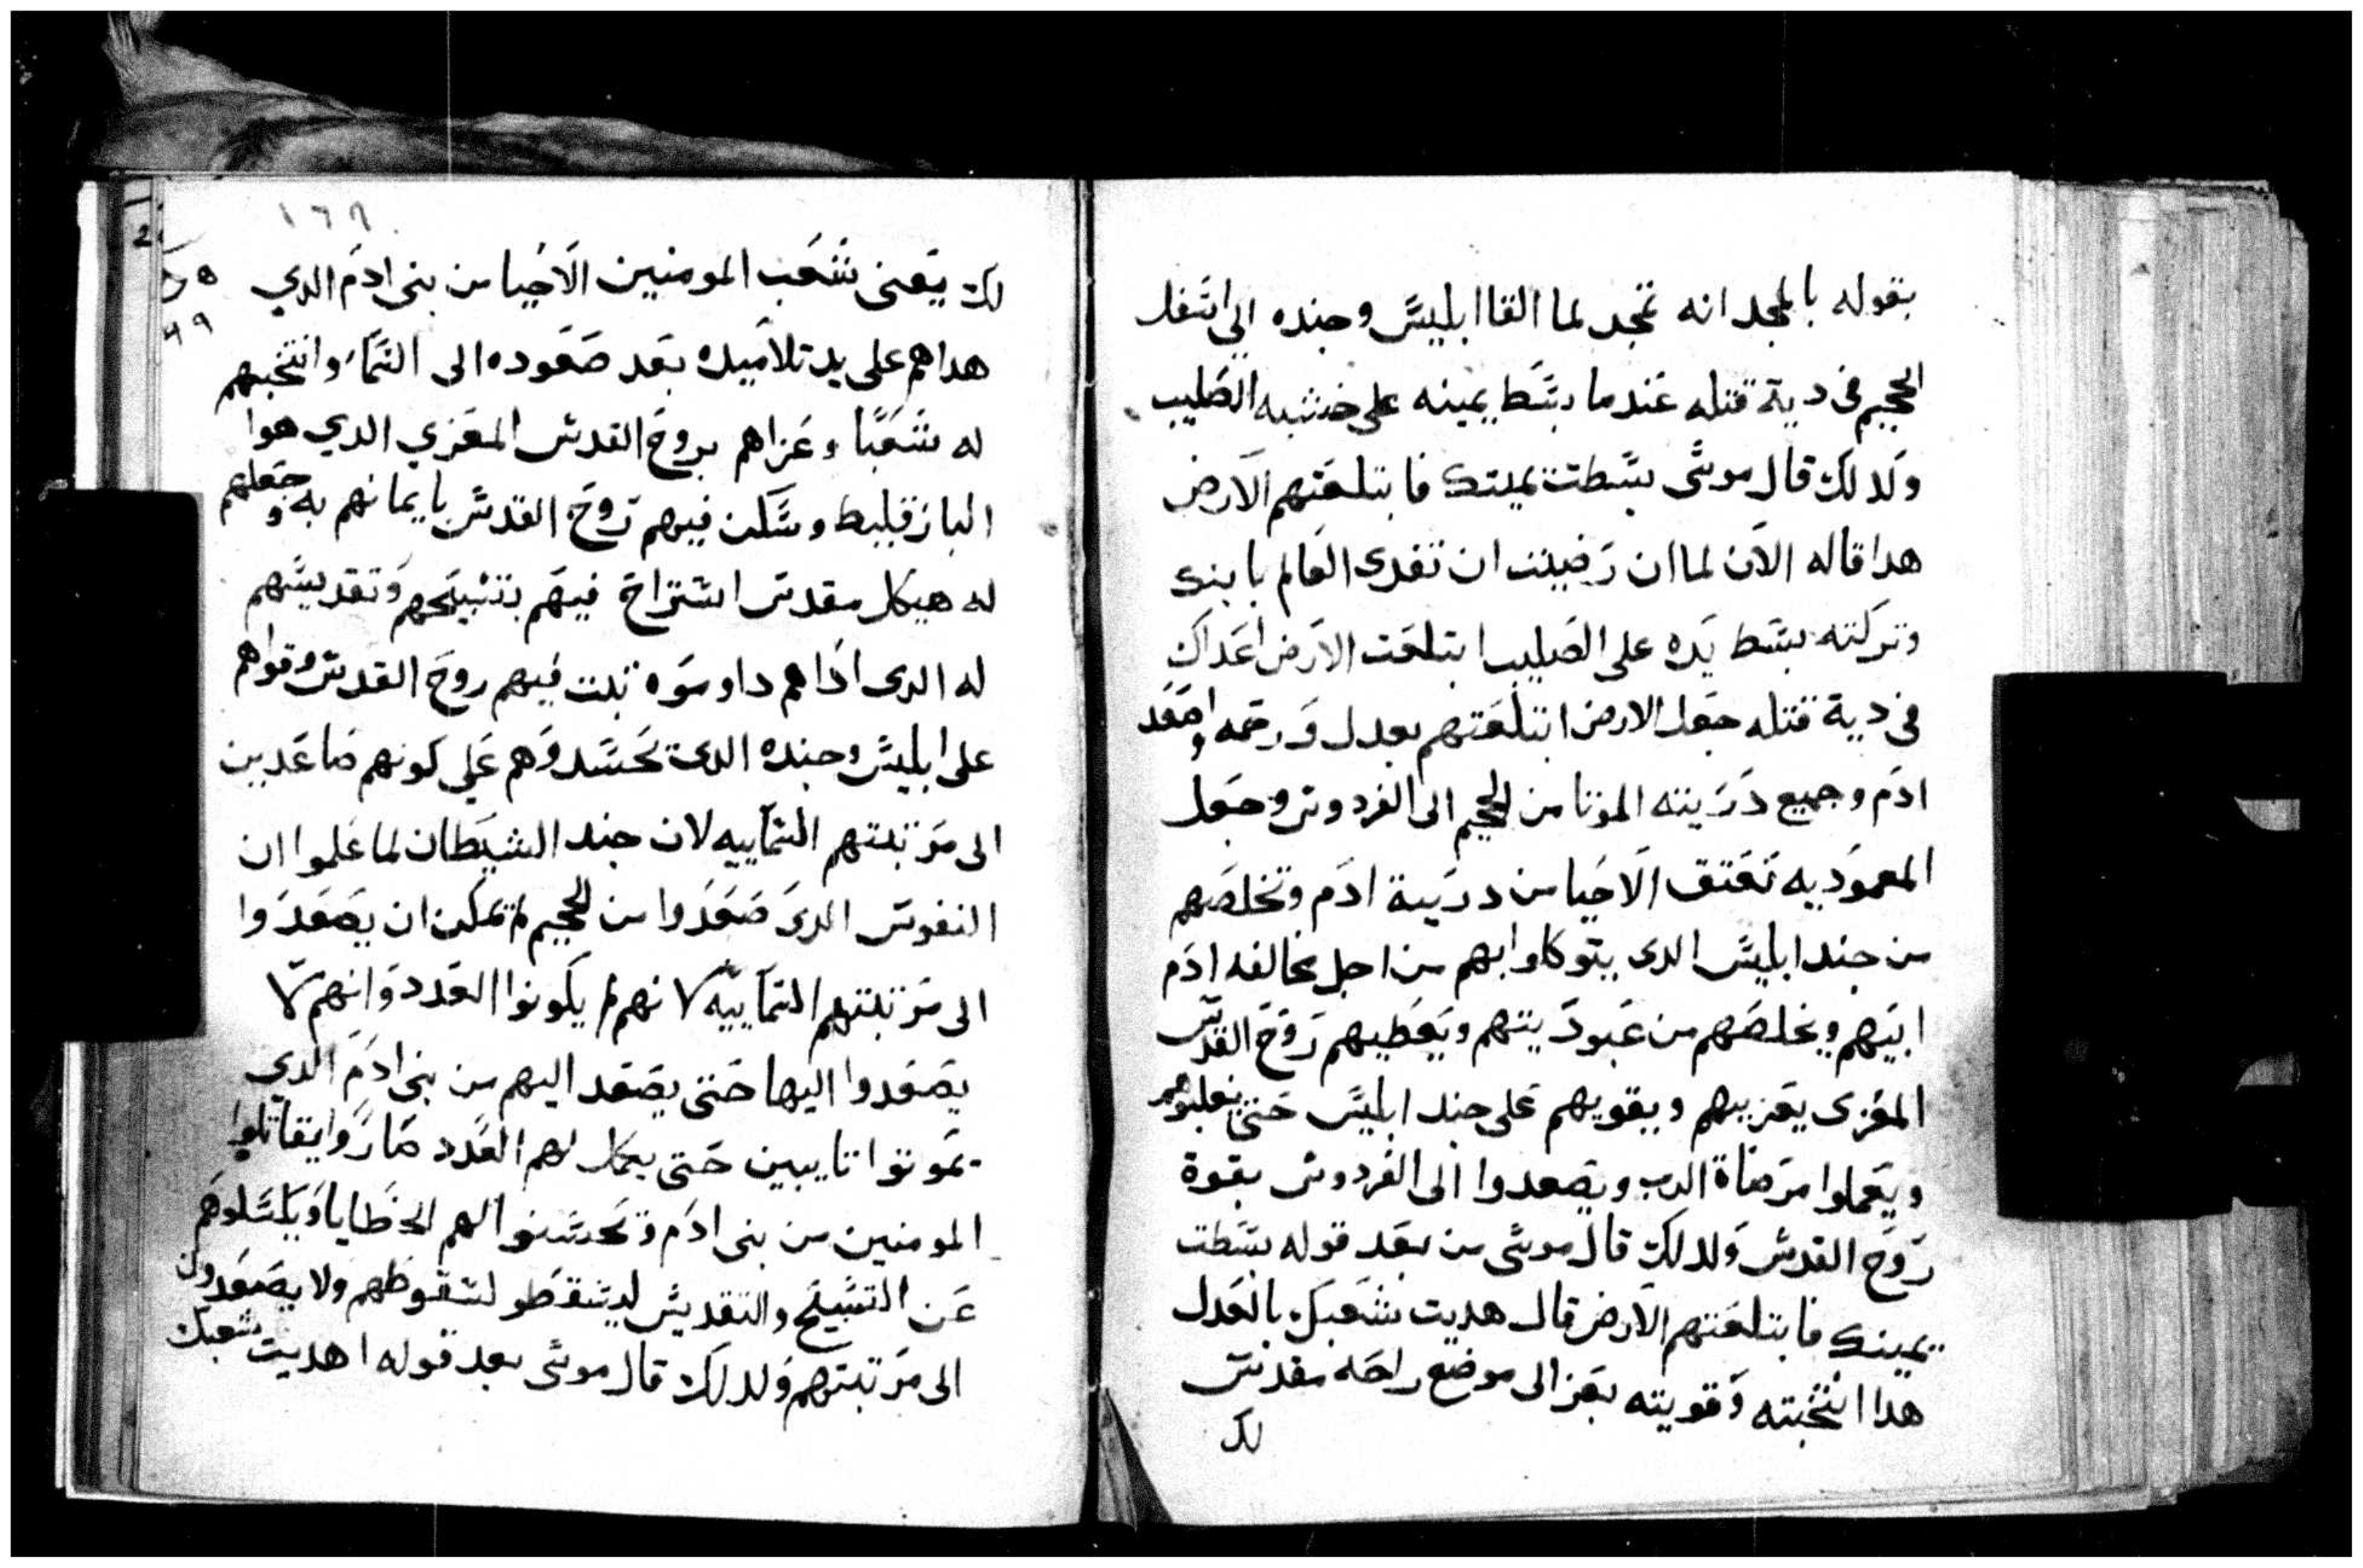 بقوله بالمجد انه تمجد لما القا ابليس وجنده الي اسفل
الجحيم في دية قتله عندما بسط يمينه على خشبه الصليب
ولدلك قال موسى بسطت يمينك فابتلعتهم الارض
هدا قاله الان لما ان رضيت ان تفدى العالم بابنك
وتركته بسط يده على الصليب ابتلعت الارض اعداك
في دية قتله جعل الارض ابتلعتهم بعدل ورحمه واصعد
ادم وجميع دريته الموتا من الجحيم الى الفردوس وجعل
المعموديه تعتق الاحيا من درية ادم وتخلصهم
من جند ابليس الدى يتوكلوا بهم من اجل مخالفه ادم
ابيهم ويخلصهم من عبوديتهم ويعطيهم روح القدس
المعزى يعزيهم ويقويهم على جند ابليس حتى يغلبوهم
ويعملوا مرضاة الرب ويصعدوا الى الفردوس بقوة
روح القدس ولدلك قال موسى من بعد قوله بسطت
يمينك فابتلعتهم الارض قال هديت شعبك بالعدل
هدا انتخبته وقويته بعز الى موضع راحه مقدس
لك
١٦٩
لك يعنى شعب المومنين الاحيا من بنى ادم الدي
هداهم على يد تلاميده بعد صعوده الى السما وانتخبهم
له شعبا وعزاهم بروح القدس المعزي الدي هوا
البارقليط وسكن فيهم روح القدس بايمانهم به وجعلهم
له هيكل مقدس استراح فيهم بتسبيحهم وتقديسهم
له الدى اداهم داومتوه تبت فيهم روح القدس وقواهم
على ابليس وجنده الدى تحسدوهم علي كونهم صاعدين
الى مرتبتهم السماييه لان جند الشيطان لما علموا ان
النفوس الدى صعدوا من الجحيم لم تمكن ان يصعدوا
الى مرتبتهم السماييه لانهم لم يكونوا العدد وانهم لا
يصعدوا اليها حتى يصعد اليهم من بنى ادم الدي
يموتوا تايبين حتى يكمل لهم العدد صاروا يقاتلوا
المومنين من بنى ادم وتحسنوا لهم الخطايا ويكسلوهم
عن التسبيح والتقديس ليسقطو لسقوطهم ولا يصعدون
الى مرتبتهم ولدلك قال موسى بعد قوله اهديت شعبك